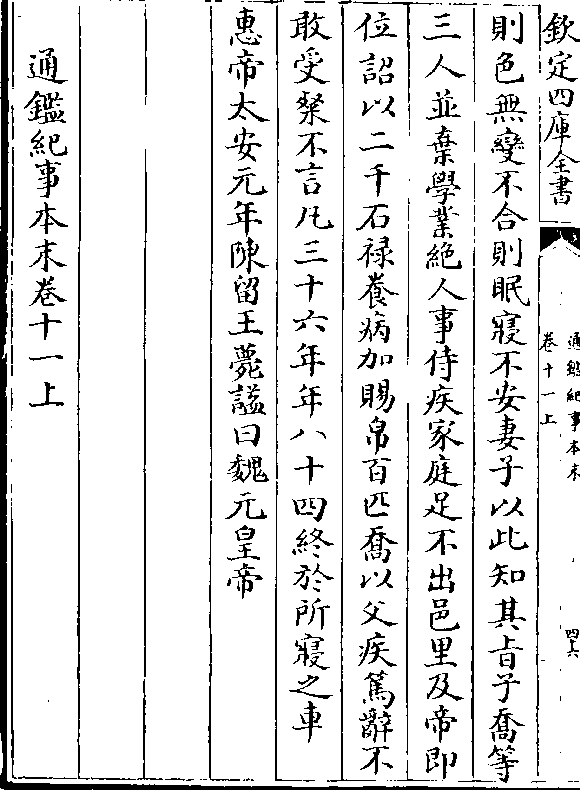 欽定四庫全書
通鑑紀事本末
卷十一上
四六
則色無變不合則眠寢不安妻子以此知其㫖子喬等
三人並棄學業絶人事侍疾家庭足不出邑里及帝即
位詔以二千石禄養病加賜帛百匹喬以父疾篤辭不
敢受粲不言凡三十六年年八十四終於所寢之車
惠帝太安元年陳留王薨諡曰魏元皇帝
通鑑紀事本末卷十一上